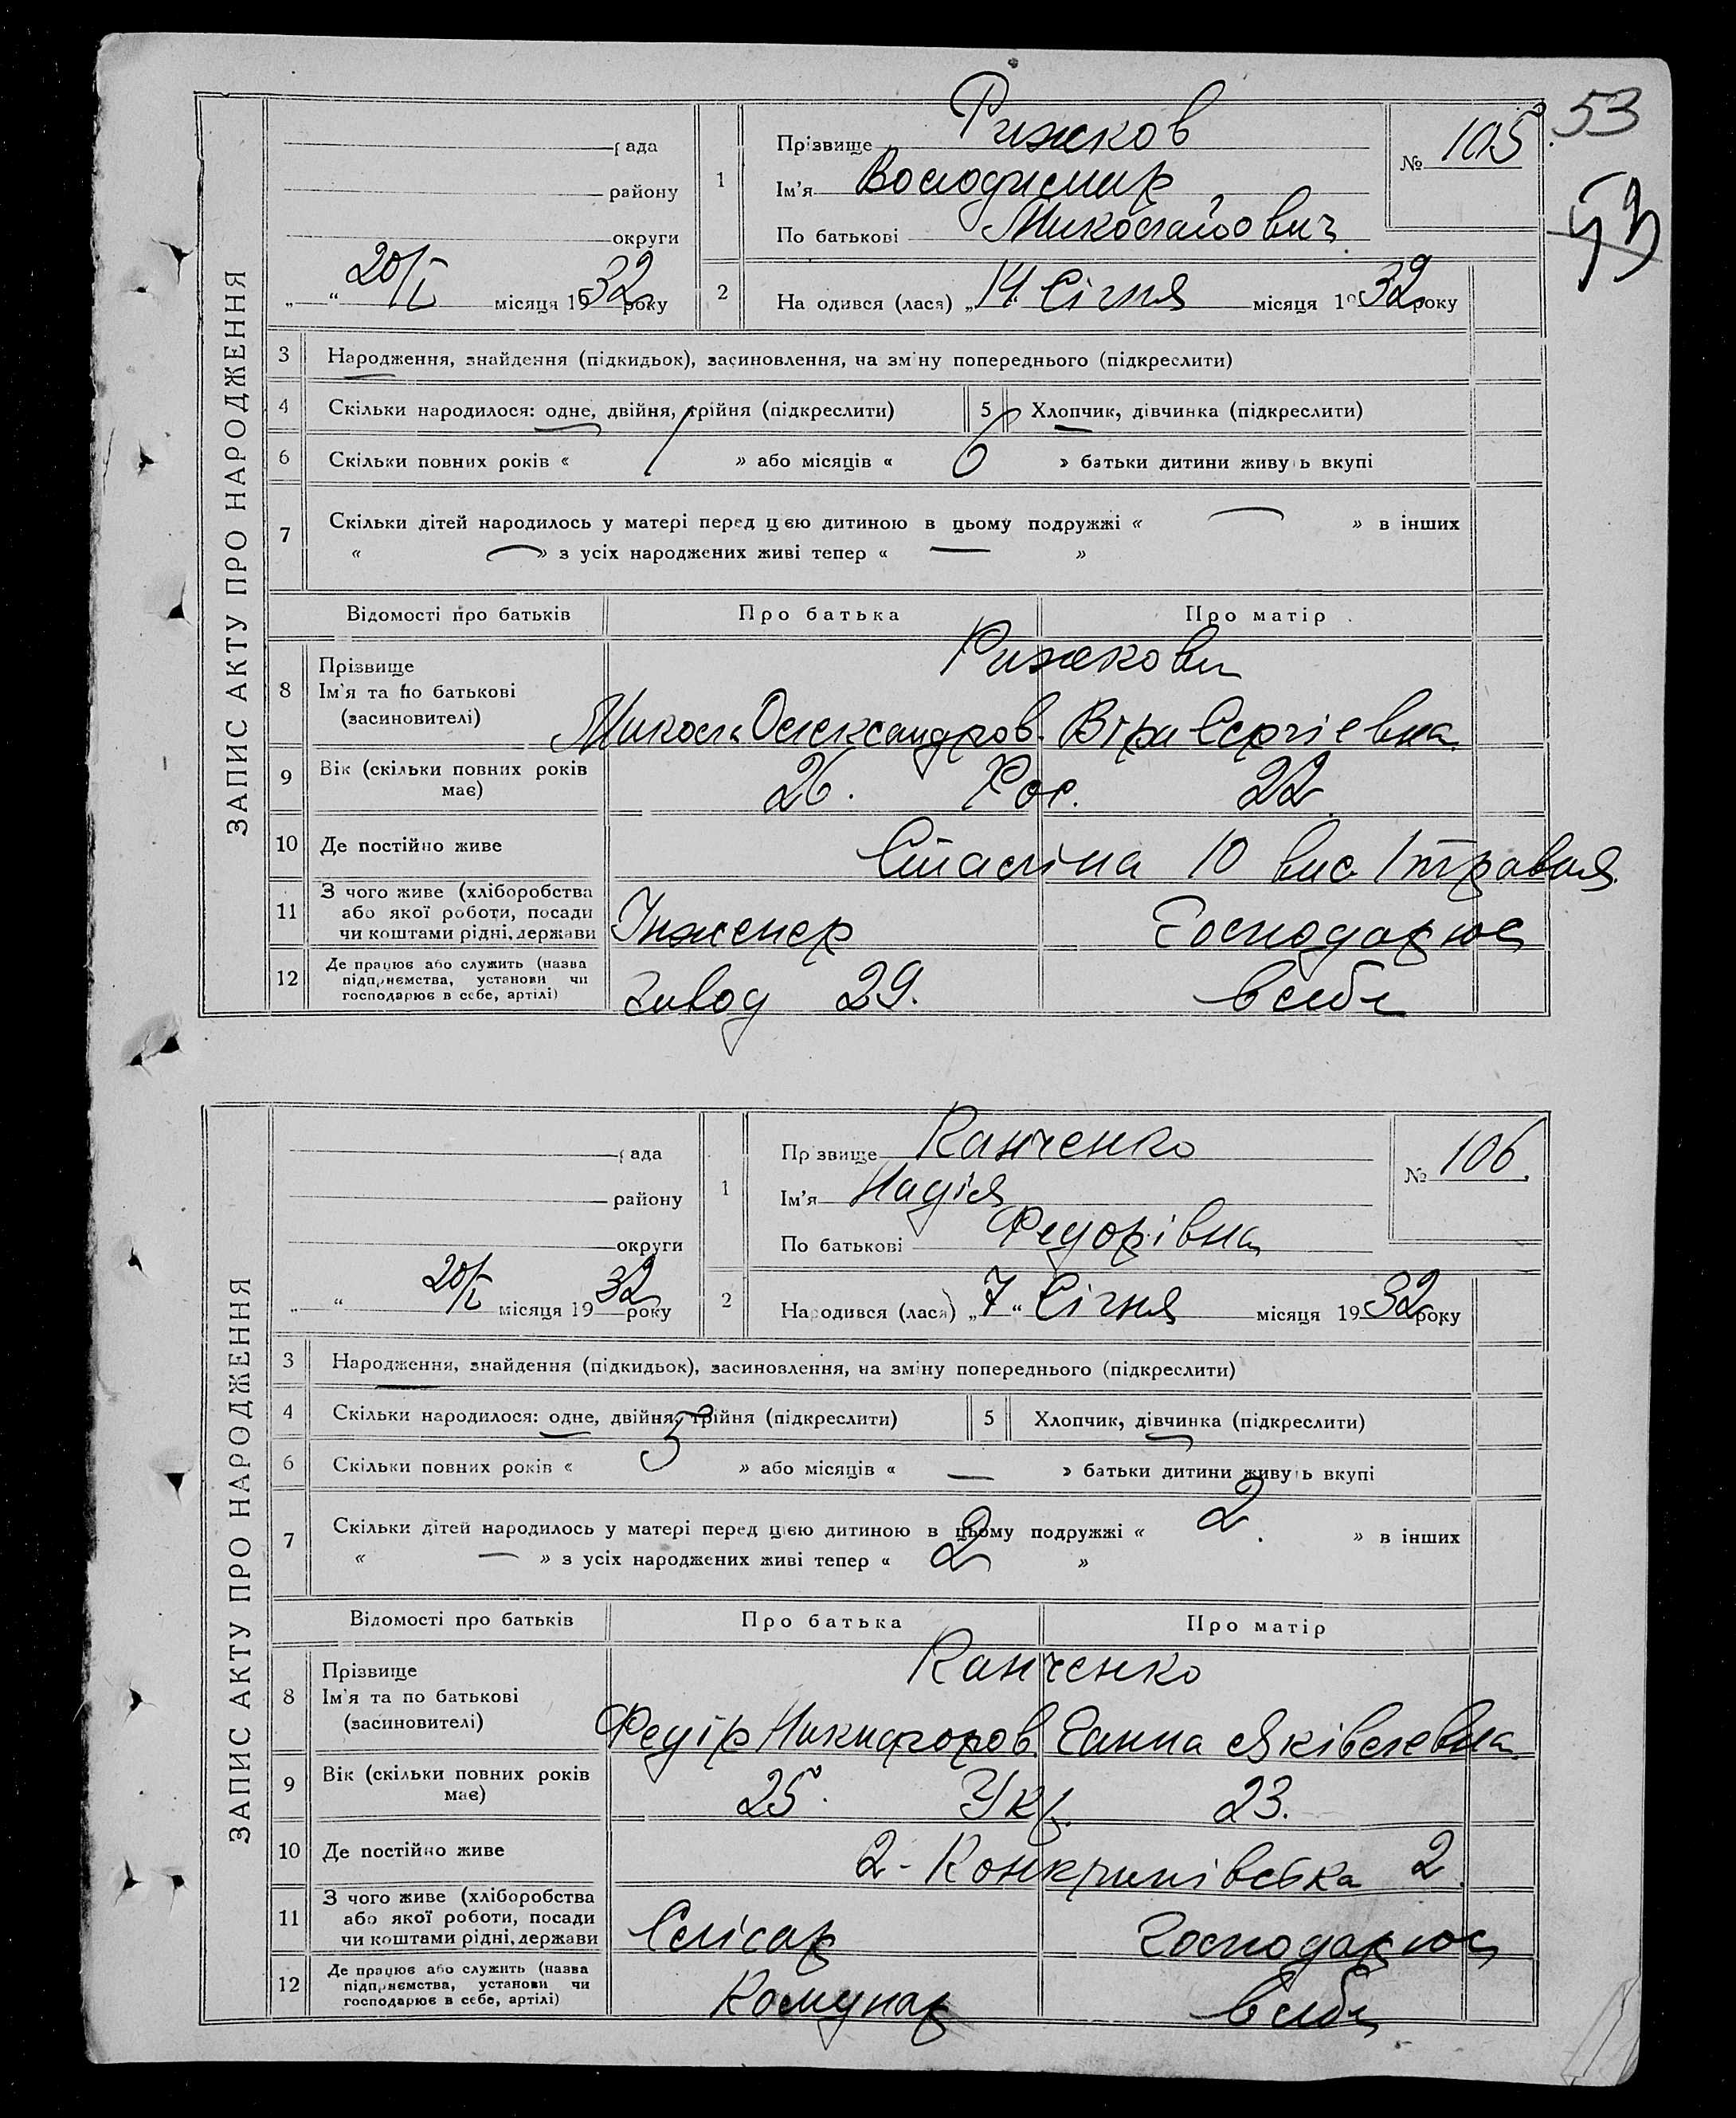 53
53
ЗАПИС АКТУ ПРО НАРОДЖЕННЯ
рада
району
округи
„ “ 20/I місяця 1932 року
1 Прізвище Рижков
Ім'я Володимир
По батькові Миколайович
№ 105
2 Народився (лася) „14. Січня місяця 1932 року
3 Народження, знайдення (підкидьок), засиновлення, на зміну попереднього (підкреслити)
4 Скільки народилося: одне, двійня, трійня (підкреслити) 5 Хлопчик, дівчинка (підкреслити)
6 Скільки повних років « / » або місяців « 6 » батьки дитини живуть вкупі
7 Скільки дітей народилось у матері перед цією дитиною в цьому подружжі « — » в інших
« — » з усіх народжених живі тепер « — »
Відомості про батьків Про батька Про матір
8 Прізвище Рижкови
Ім'я та по батькові
(засиновителі) Микола Олександров. Віра Сергіевна
9 Вік (скільки повних років має) 26. Рос. 22
10 Де постійно живе Сталіна 10 вис. 1 травня
11 З чого живе (хліборобства
або якої роботи, посади
чи коштами рідні, держави Інженер Господарює
12 Де працює або служить (назва
підприємства, установи чи
господарює в себе, артілі) Завод 29. в себе
ЗАПИС АКТУ ПРО НАРОДЖЕННЯ
рада
району
округи
„ “ 20/I місяця 1932 року
1 Прізвище Канченко
Ім'я Надія
По батькові Федорівна
№ 106.
2 Народився (лася) „7“ Січня місяця 1932 року
3 Народження, знайдення (підкидьок), засиновлення, на зміну попереднього (підкреслити)
4 Скільки народилося: одне, двійня, трійня (підкреслити) 5 Хлопчик, дівчинка (підкреслити)
6 Скільки повних років « 5 » або місяців « — » батьки дитини живуть вкупі
7 Скільки дітей народилось у матері перед цією дитиною в цьому подружжі « 2. » в інших
« — » з усіх народжених живі тепер « 2 »
Відомості про батьків Про батька Про матір
8 Прізвище Канченко
Ім'я та по батькові
(засиновителі) Федір Никифоров. Ганна Яківлевна.
9 Вік (скільки повних років має) 25. Укр. 23.
10 Де постійно живе 2 - 2
11 З чого живе (хліборобства
або якої роботи, посади
чи коштами рідні, держави Слісар Господарює
12 Де працює або служить (назва
підприємства, установи чи
господарює в себе, артілі) Комунар в себе